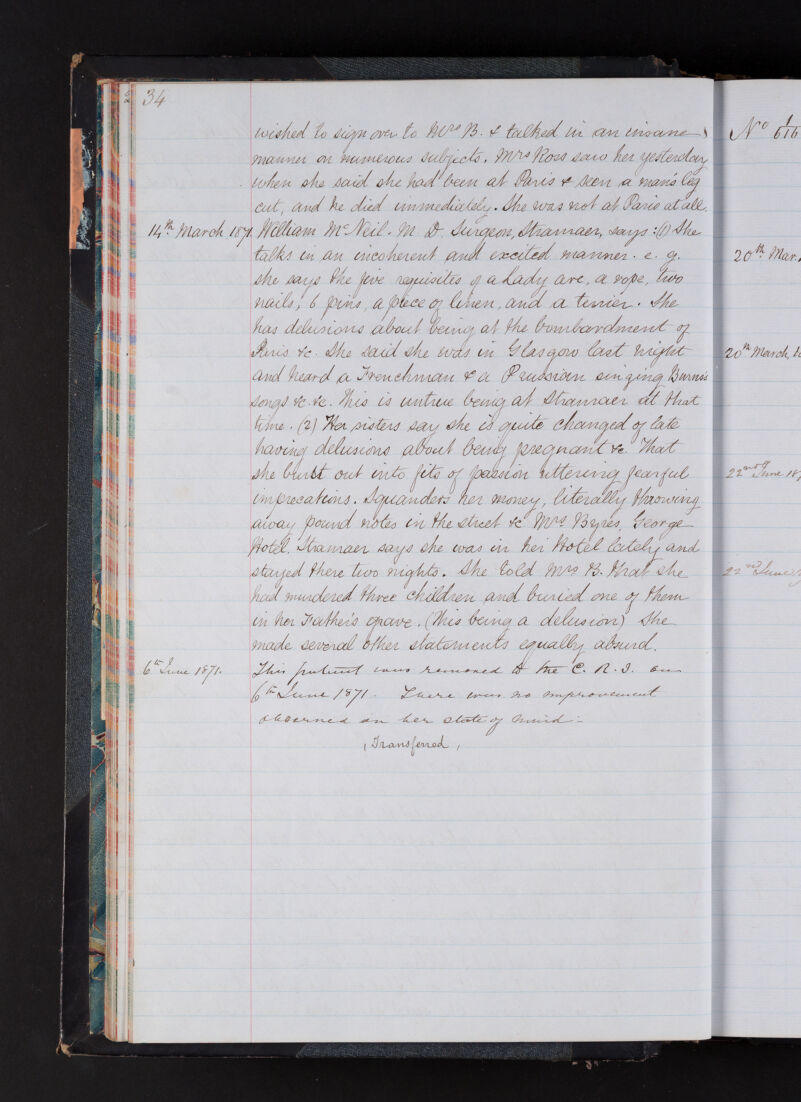 34
wished to sign over to Mrs B. & talked in an insane
manner on numerous subjects. Mrs Ross saw her yesterday
when she said she had been at Paris & seen a man's leg
cut, and he died immediately. She was not at Paris at all.
14th March 1871. William McNeil. M. D. Surgeon, Stranraer, says: (1) She
talks in an incoherent and excited manner. e. g.
she says the five requisites of a Lady are, a rope, two
nails, 6 pins, a piece of linen, and a terrier. She
has delusions about being at the bombardment of
Paris &c. She said she was in Glasgow last night
and heard a Frenchman & a Prussian singing Burns's
songs &c. &c. This is untrue being at Stranraer at that
time. (2) Her sisters say she is quite changed of late
having delusions about being pregnant &c. That
she burst out into fits of passion uttering fearful
imprecations. Squanders her money, literally throwing
away pound notes in the street &c Mrs Byres, George
Hotel, Stranraer says she was in her Hotel lately and
stayed there two nights. She told Mrs B. that she
had murdered three children and buried one of them
in her Father's grave. (This being a delusion) She
made several other statements equally absurd.
6th June 1871. This patient was removed to the C. R. I. on
6th June 1871. There was no improvement
observed in her state of mind.
(Transferred)
No 1/616
20th Mar.
20th March, 1
22nd June 18
22nd June